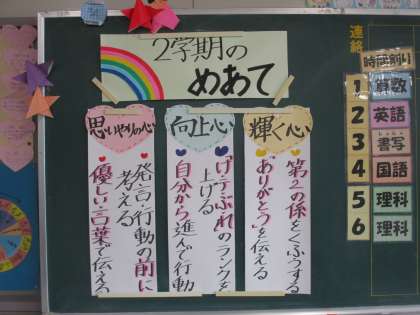 2学期の
めあて
輝く心
第2の係をくふうする
"ありがとう"を伝える
向上心
"げてぶれ"のランクを
上げる
自分から進んで行動
思いやりの心
発言・行動の前に
考える
優しい言葉で伝える
連絡
時間割り
1 算数
2 英語
3 書写
4 国語
5 理科
6 理科